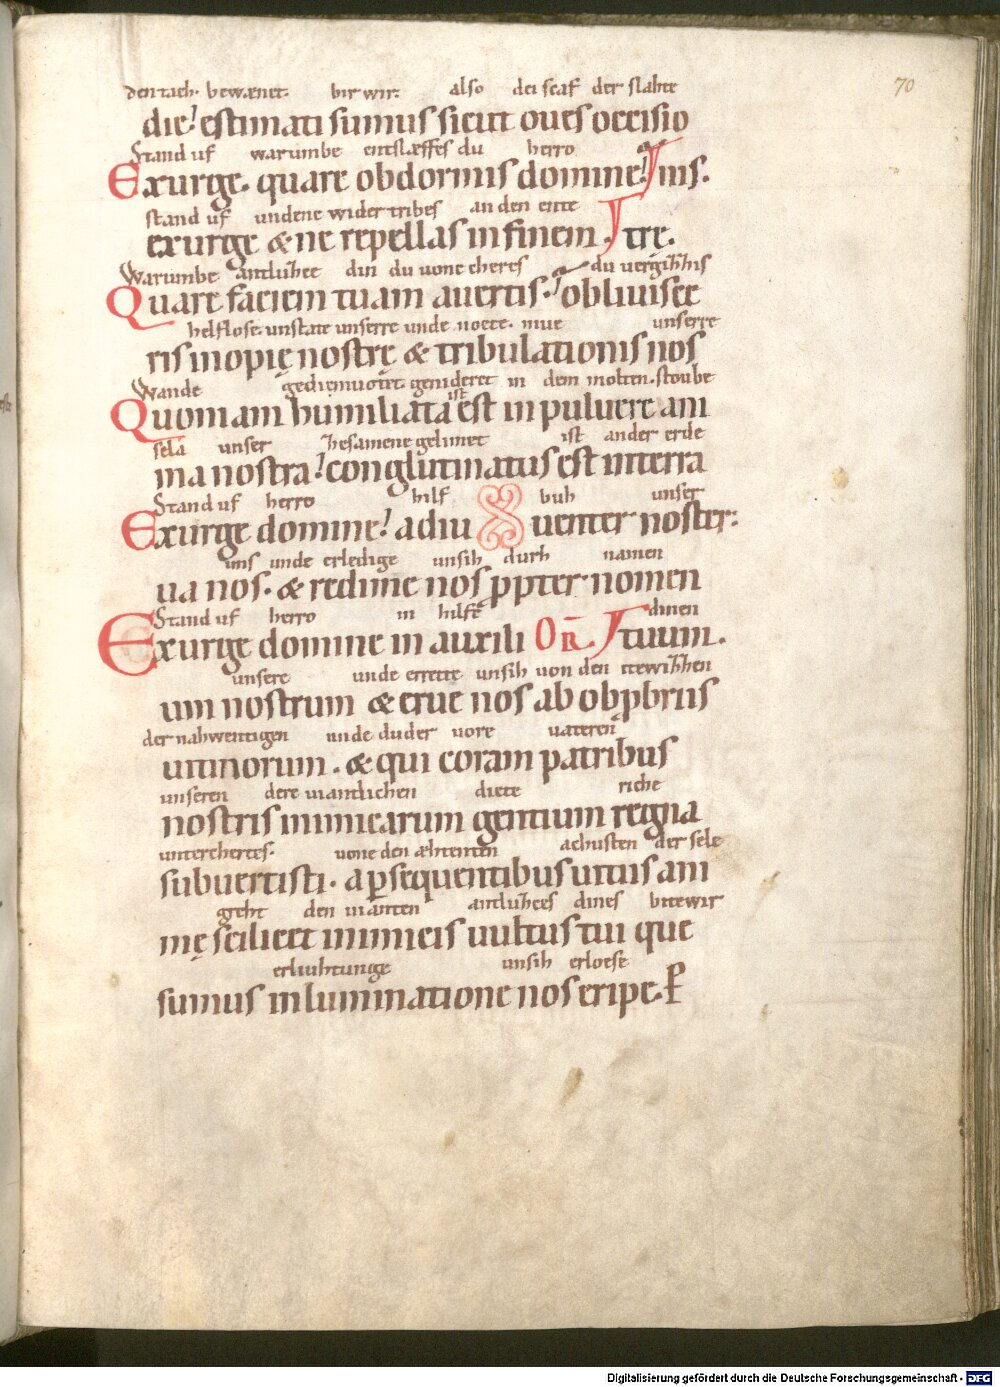 70
den tach. bewænet. bir wir. also dei scaf der slahte
die! estimati sumus sicut oues occisio
Stand uf warumbe entslæffes du herro
Exurge. quare obdormis domine? nis.
stand uf undene wider tribes an den ente
exurge & ne repellas in finem. trę.
Warumbe antluhce din du uone cheres du uergihhis
Quare faciem tuam auertis. obliuisce
helflose. unstate unserre unde noete. mue unserre
ris inopię nostrę & tribulationis nos
Wande gediemuotet genideret ist in dem molten. stoube
Quoniam humiliata est in puluere ani
sela unser zesamene gelimet ist ander erde
ma nostra! conglutinatus est in terra
Stand uf herro hilf buh unser
Exurge domine! adiu uenter noster:
uns unde erledige unsih durh namen
ua nos. & redime nos ppter nomen
Stand uf herro in hilfe dinen
Exurge domine in auxili OR. tuum.
unsere unde errette unsih uon den itewihhen
um nostrum & erue nos ab obpbriis
der nahwentigen unde du der uore uateren
uitinorum. & qui coram patribus
unseren dere uiantlichen diete riche
nostris inimicarum gentium regna
unterchertes. uone den æhtenten achusten der sele
subuertisti. a psequentibus uitiis ani
geht den uianten antluhces dines bitewir
mę scilicet inimicis uultus tui que
erliuhtunge unsih erloese
sumus inluminatione nos eripe. P
Digitalisierung gefördert durch die Deutsche Forschungsgemeinschaft - DFG